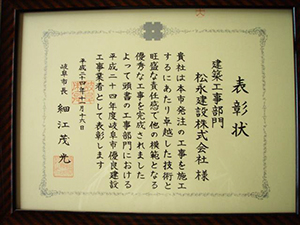 表彰状
建築工事部門
松永建設株式会社 様
貴社は本市発注の工事を施工
するにあたり卓越した技術と
旺盛な責任感で他の模範となる
優秀な工事を完成されました
よって頭書の工事部門における
平成二十四年度岐阜市優良建設
工事業者として表彰します
平成二十四年十一月十六日
岐阜市長 細江茂光